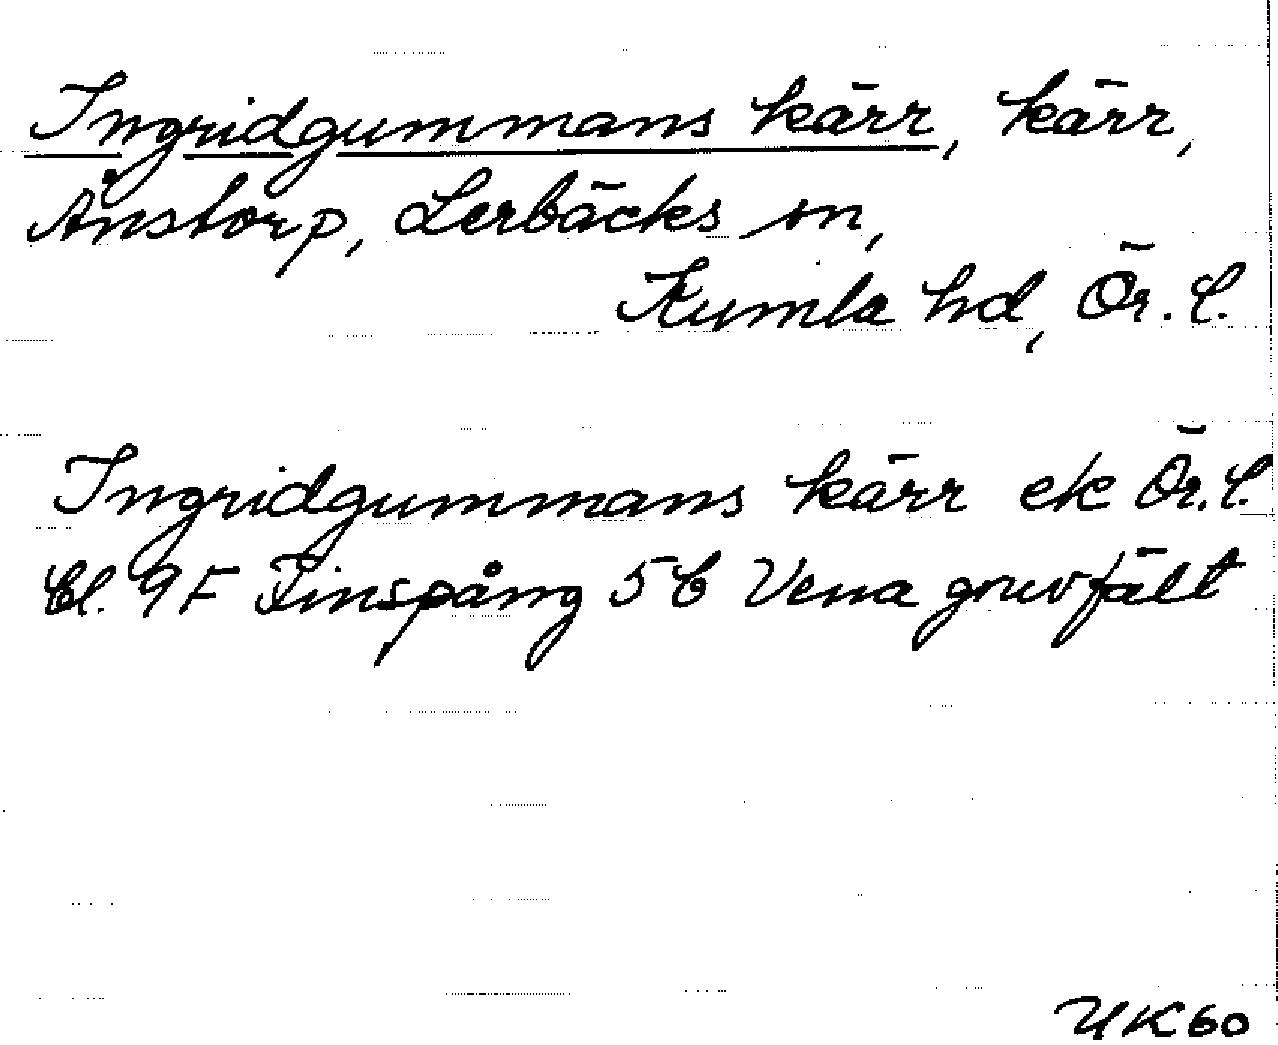 Ingridgummans kärr, kärr,
Ånstorp, Lerbäcks sn,
Kumla hd, Ör. l.
Ingridgummans kärr ek Ör. l.
bl. 9F Finspång 5b Vena gruvfält
YK60